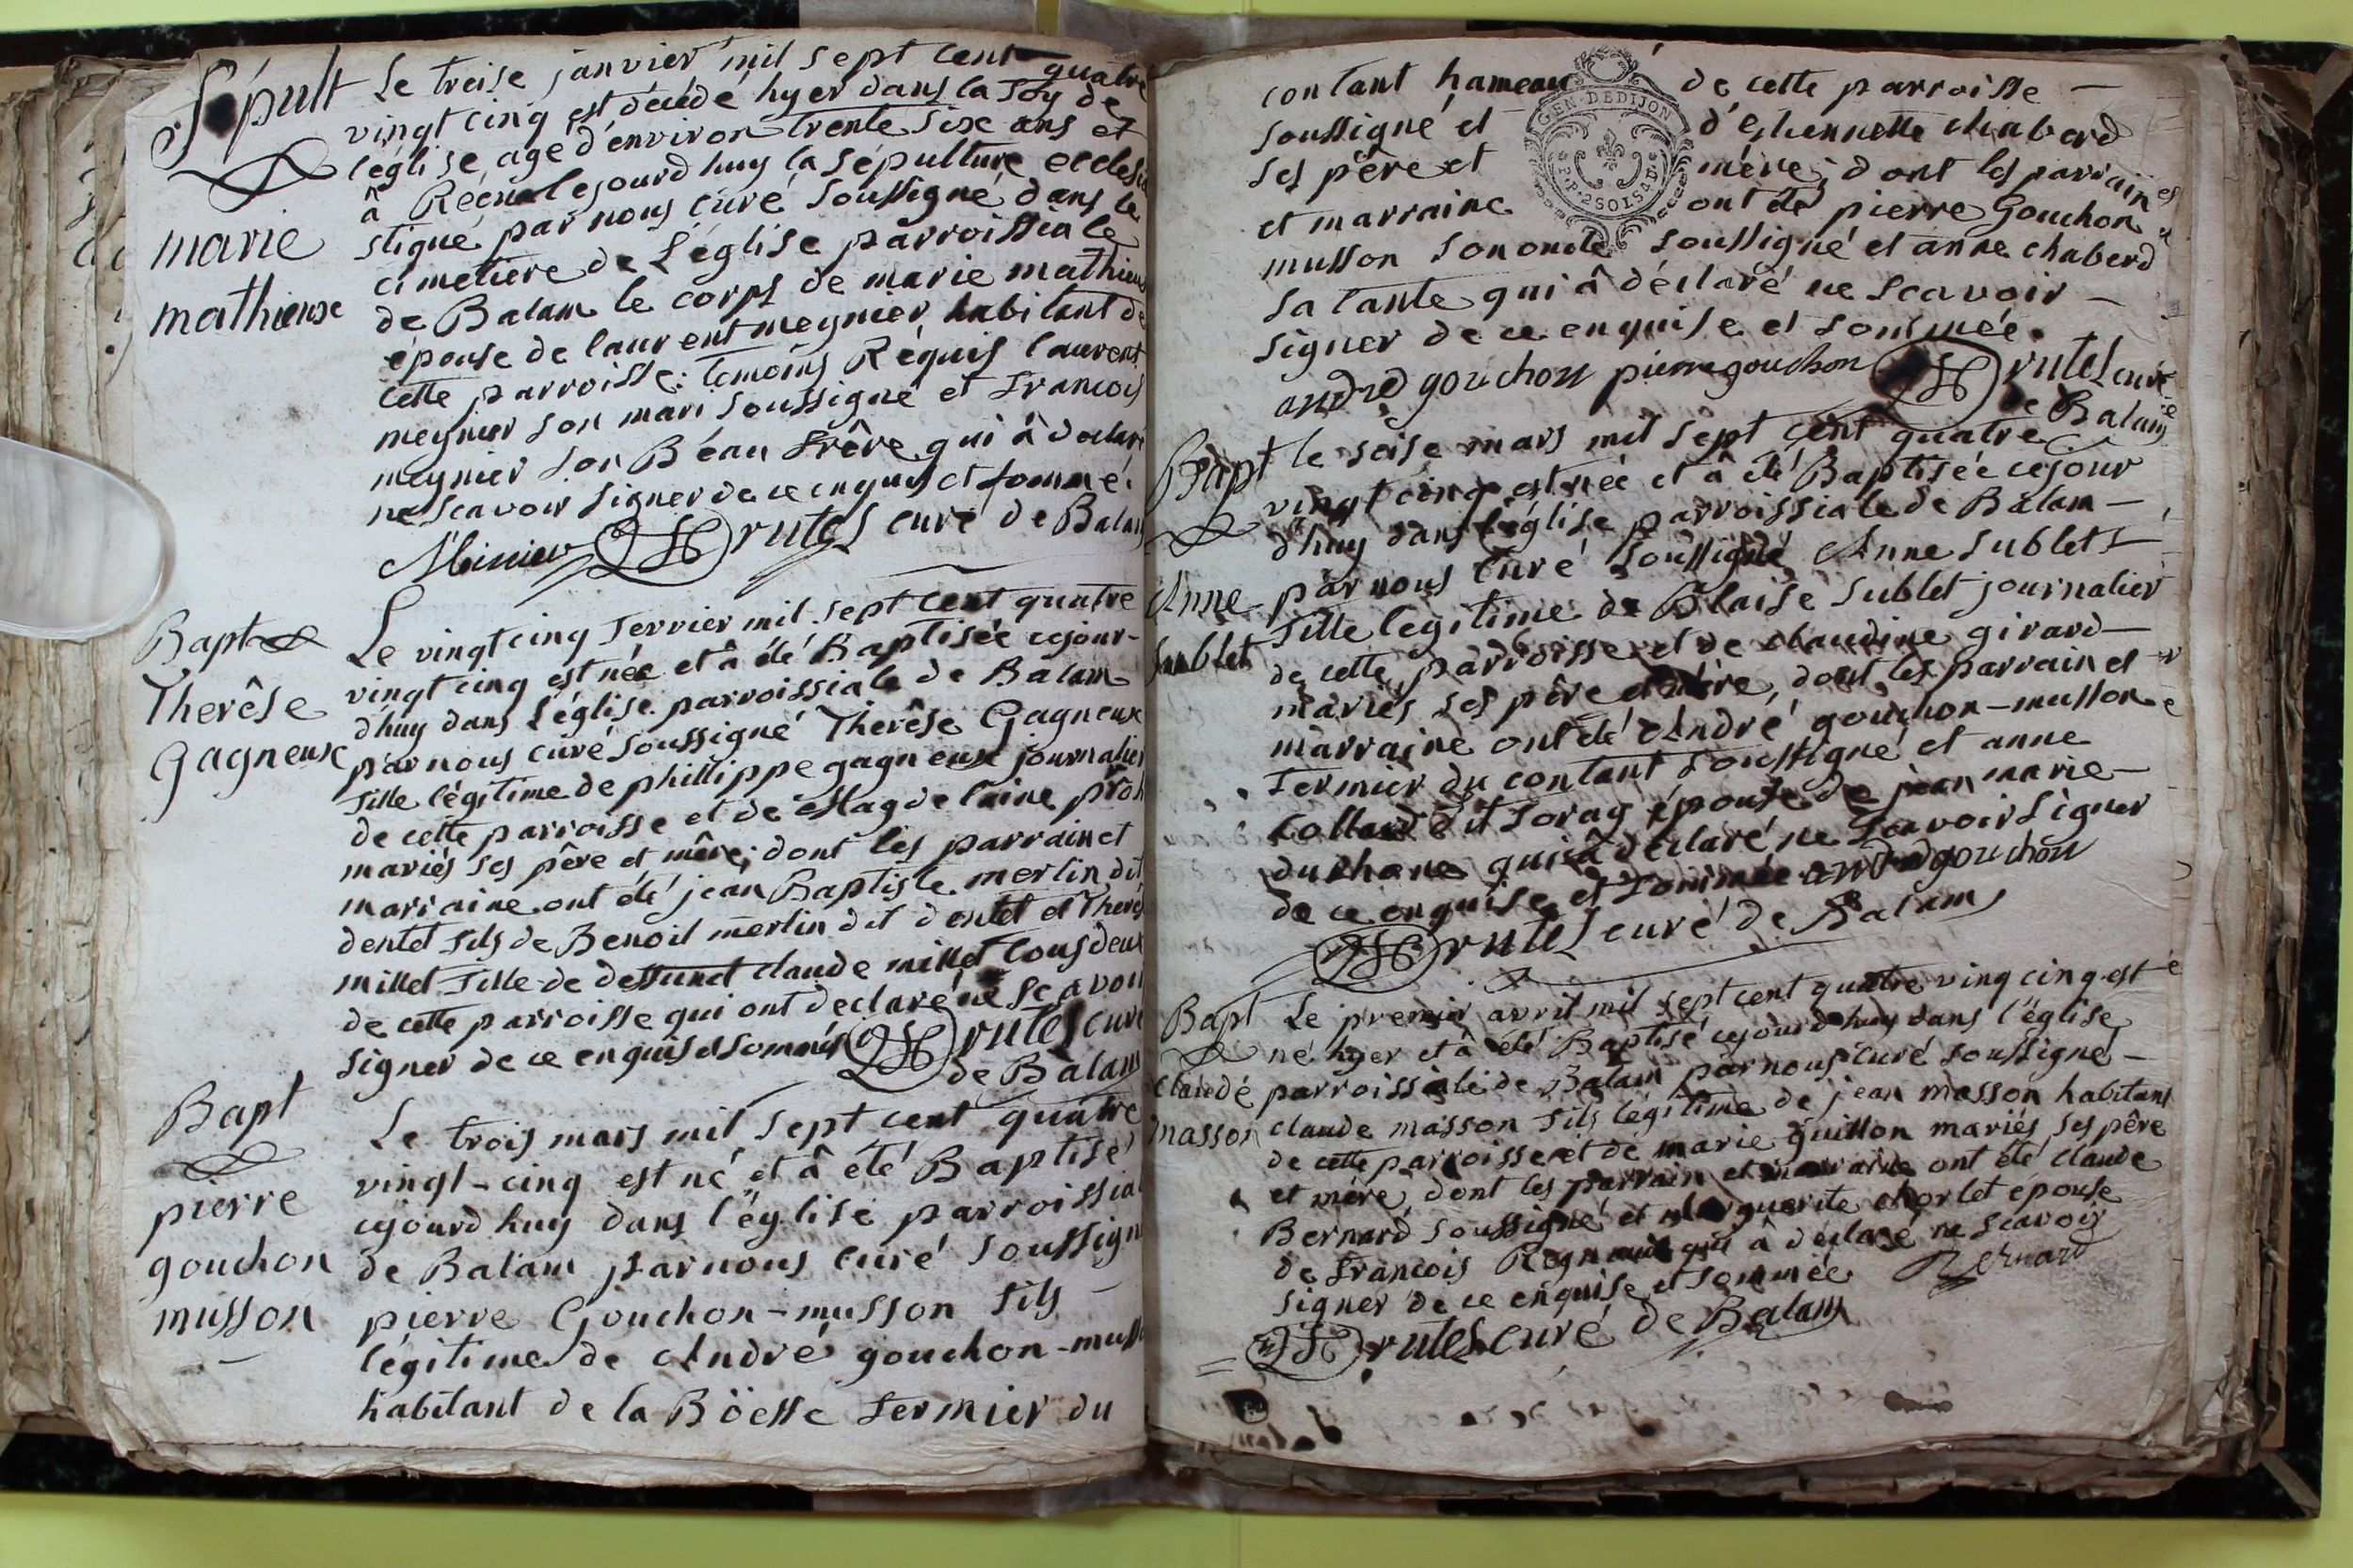 Sépult
marie
mathieuxe
Le treise janvier mil sept cent quatre
vingt cinq est décédé hyer dans la foy de
l'église, agé d'environ trente sixe ans et
à Récu cejourd huy la sépulture ecclesia
stique par nous curé soussigné dans le
cimetiere de L'église parroissiale
de Balam le corps de marie mathieux
épouse de laurent meynier habitant de
cette parroisse: temoins Réquis laurent
meynier son mari soussigné et francois
meynier son Béau frêre qui â déclaré
ne scavoir signer de ce enquis et sommé.
Minier Drutel curé de Balam
Bapt
Therêse
Gagneuxe
Le vingt cinq fevrier mil sept cent quatre
vingt cinq est née et â été Baptisée cejour-
d'huy dans L'église parroissiale de Balam
par nous curé soussigné Therêse Gagneux
fille légitime de phillippe gagneuxe journalier
de cette parroisse et de Magdelaine prôh
mariés ses pêre et mêre; dont les parrain et
marraine ont été jean Baptiste merlin dit
dentet fils de Benoit merlin dit dentet et Therês
millet fille de deffunct claude millet tous deux
de cette parroisse qui ont declaré ne scavoir
signer de ce enquis et sommés Drutel curé
de Balam
Bapt
pierre
gouchon
musson
Le trois mars mil sept cent quatre
vingt-cinq est né et â été Baptisé
cejourd huy dans l'église parroissial
de Balam par nous curé soussigné
pierre Gouchon-musson fils
légitime de André gouchon-muss
habitant de la Böesse fermier du
contant hameau de cette parroisse
soussigné et d'Ethiennette chaberd
ses pêre et mère; dont les parrain
et marraine ont été pierre Gouchon
musson son oncle soussigné et anne chaberd
sa tante qui â déclaré ne scavoir
signer de ce enquise et sommée.
andré gouchon pierre gouchon Drutel curé
de Balam
GEN. DE DIJON
P.P. 2 SOLS 4 D.
Bapt
Anne
Sublet
le seise mars mil sept cent quatre
vingt cinq est née et â été Baptisée cejour
d'huy dans l'église parroissiale de Balam
par nous curé soussigné Anne Sublet
fille legitime de Blaise Sublet journalier
de cette parroisse et de claudine girard
mariés ses pêre et mère, dont les parrain et
marraine ont été André gouchon-musson
fermier du contant soussigné et anne
collard dit foray épouse de jean marie
duchane qui â déclaré ne scavoir signer
de ce enquise et sommée andré gouchon
Drutel curé de Balam
Bapt
claude
masson
Le premier avril mil sept cent quatre ving cinq est
né hyer et â été Baptisé cejourd huy dans l'église
parroissiale de Balam par nous curé soussigné
claude masson fils légitime de jean masson habitant
de cette parroisse et de marie guillon mariés ses pêre
et mére, dont les parrain et marraine ont été claude
Bernard soussigné et Marguerite chorlet epouse
de francois Regnaud qui â déclaré ne scavoir
signer de ce enquise et sommée Bernard
Drutel curé de Balam